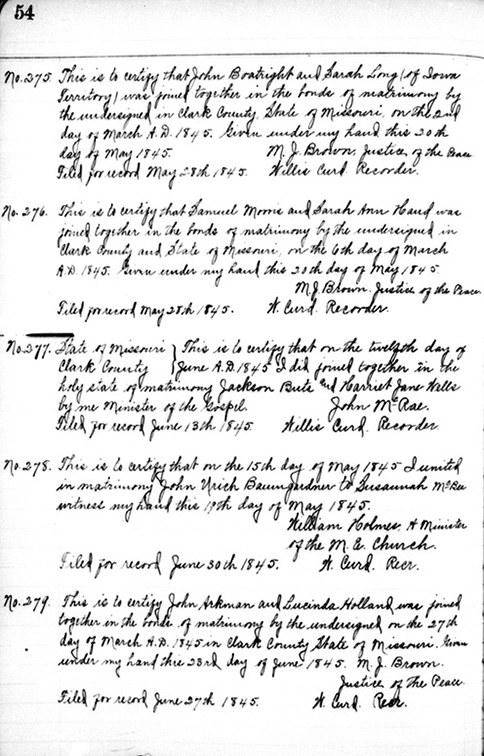 54
No. 275. This is to certify that John Boatright and Sarah Long (of Iowa
Territory) was joined together in the bonds of matrimony by
the undersigned in Clark County, State of Missouri, on the 2nd
day of March A.D. 1845. Given under my hand this 20th
day of May 1845. M. J. Brown, Justice of the Peace
Filed for record May 28th 1845. Willis Curd. Recorder.
No. 276. This is to certify that Samuel Morris and Sarah Ann Haud was
joined together in the bonds of matrimony by the undersigned in
Clark County and State of Missouri, on the 6th day of March
A.D. 1845. Given under my hand this 20th day of May 1845.
M. J. Brown. Justice of the Peace.
Filed for record May 28th 1845. W. Curd. Recorder.
No. 277. State of Missouri } This is to certify that on the twelfth day of
Clark County } June A.D. 1845 I did joined together in the
holy state of matrimony Jackson Buts and Harriet Jane Wells
by me Minister of the Gospel. John McRae.
Filed for record June 13th 1845 Willis Curd. Recorder.
No. 278. This is to certify that on the 15th day of May 1845 I united
in matrimony John Urich Baumgardner to Susannah McBee
witness my hand this 19th day of May 1845.
William Holmes. A Minister
of the M. E. Church.
Filed for record June 30th 1845. W. Curd. Recr.
No. 279. This is to certify John Arkman and Lucinda Holland was joined
together in the bonds of matrimony by the undersigned on the 27th
day of March A.D. 1845 in Clark County State of Missouri. Given
under my hand this 23rd day of June 1845. M. J. Brown.
Justice of the Peace.
Filed for record June 27th 1845. W. Curd. Recr.